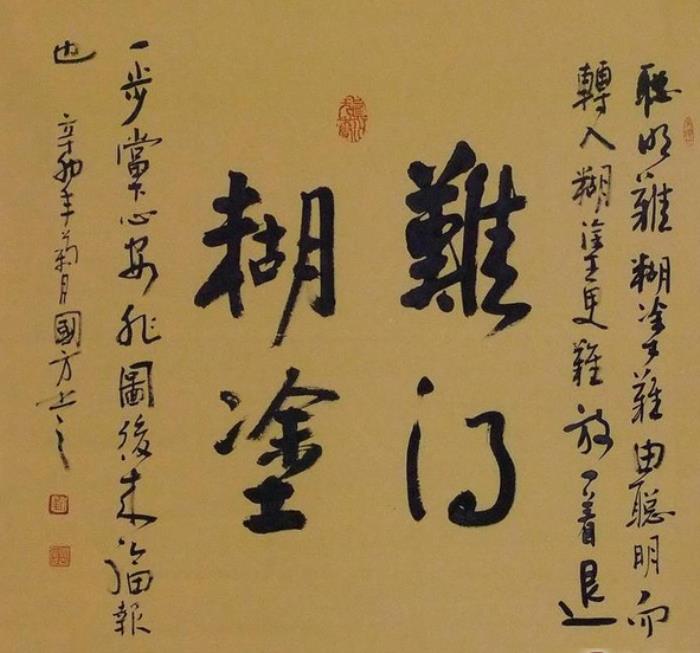 聰明難糊塗難由聰明而
轉入糊塗更難放一着退
難得
糊塗
一步當下心安非圖後來福報
也
辛卯年菊月國方书之